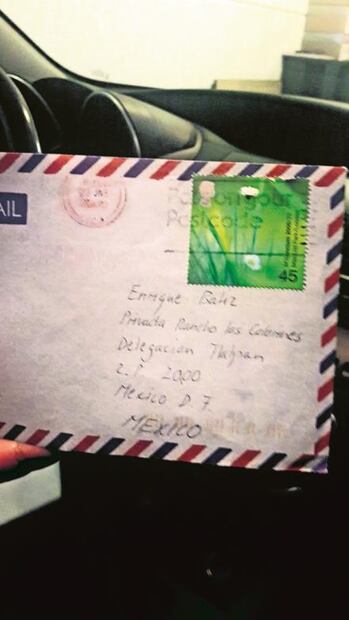 AIL
Pass on your
Postcode
45
Enrique Batiz
Privada Rancho los Colorines
Delegación Tlalpan
2.P. 2000
Mexico D.F.
MEXICO